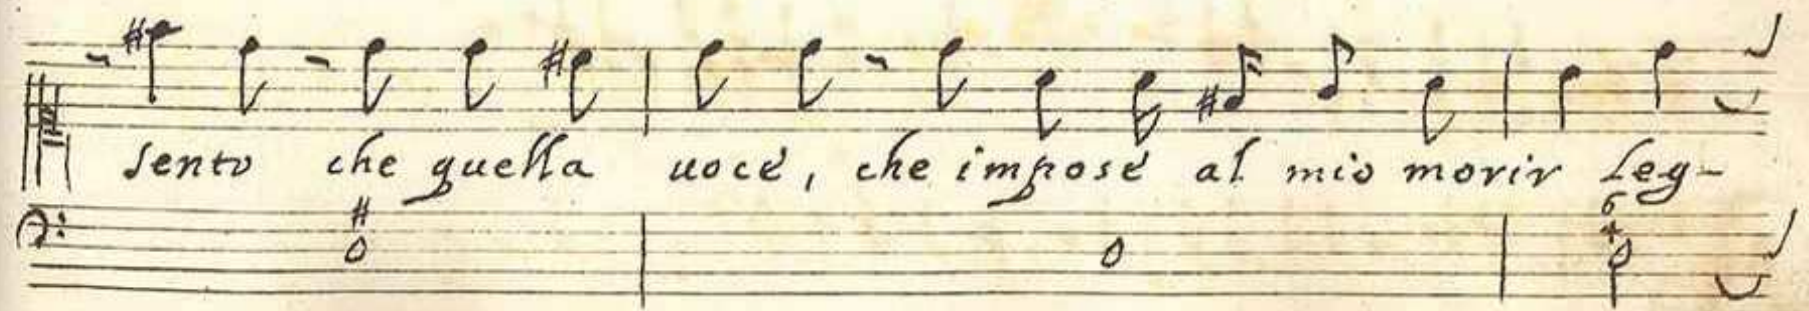 sento che quella uoce, che impose al mio morir leg-
#
6